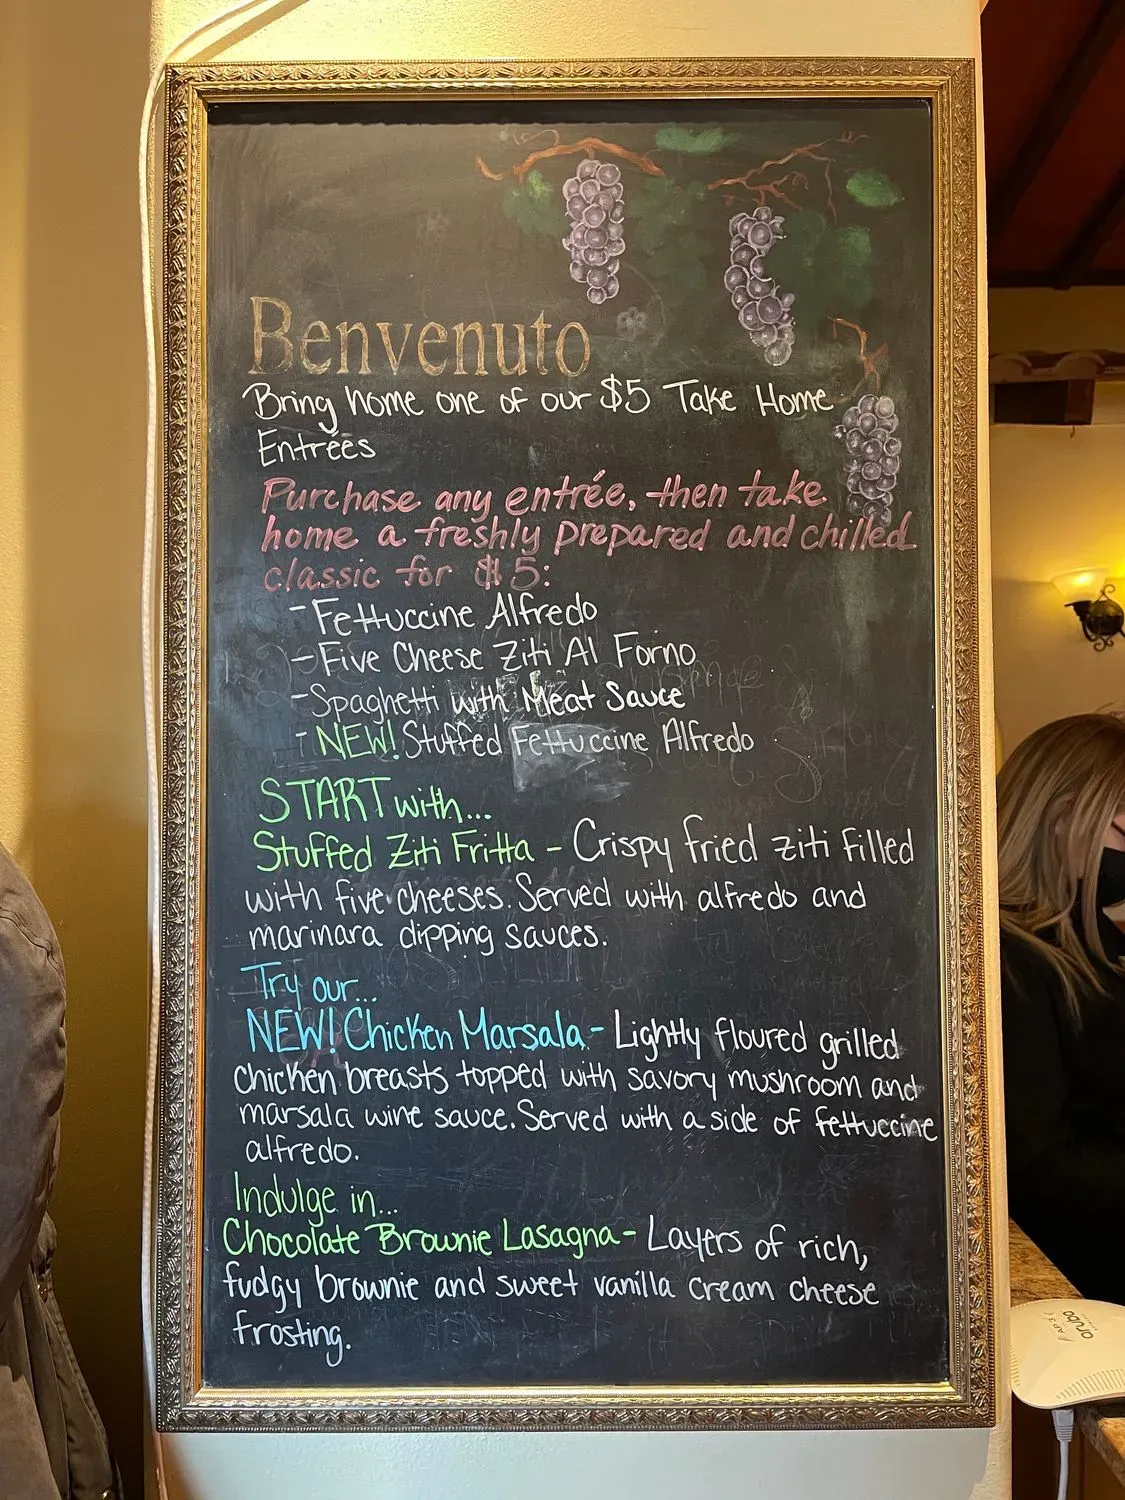 Benvenuto
Bring home one of our $5 Take Home
Entrées
Purchase any entrée, then take
home a freshly prepared and chilled
classic for $5:
- Fettuccine Alfredo
- Five Cheese Ziti Al Forno
- Spaghetti with Meat Sauce
- NEW! Stuffed Fettuccine Alfredo
START with...
Stuffed Ziti Fritta - Crispy fried ziti filled
with five cheeses. Served with alfredo and
marinara dipping sauces.
Try our...
NEW! Chicken Marsala - Lightly floured grilled
chicken breasts topped with savory mushroom and
marsala wine sauce. Served with a side of fettuccine
alfredo.
Indulge in...
Chocolate Brownie Lasagna - Layers of rich,
fudgy brownie and sweet vanilla cream cheese
frosting.
aruba